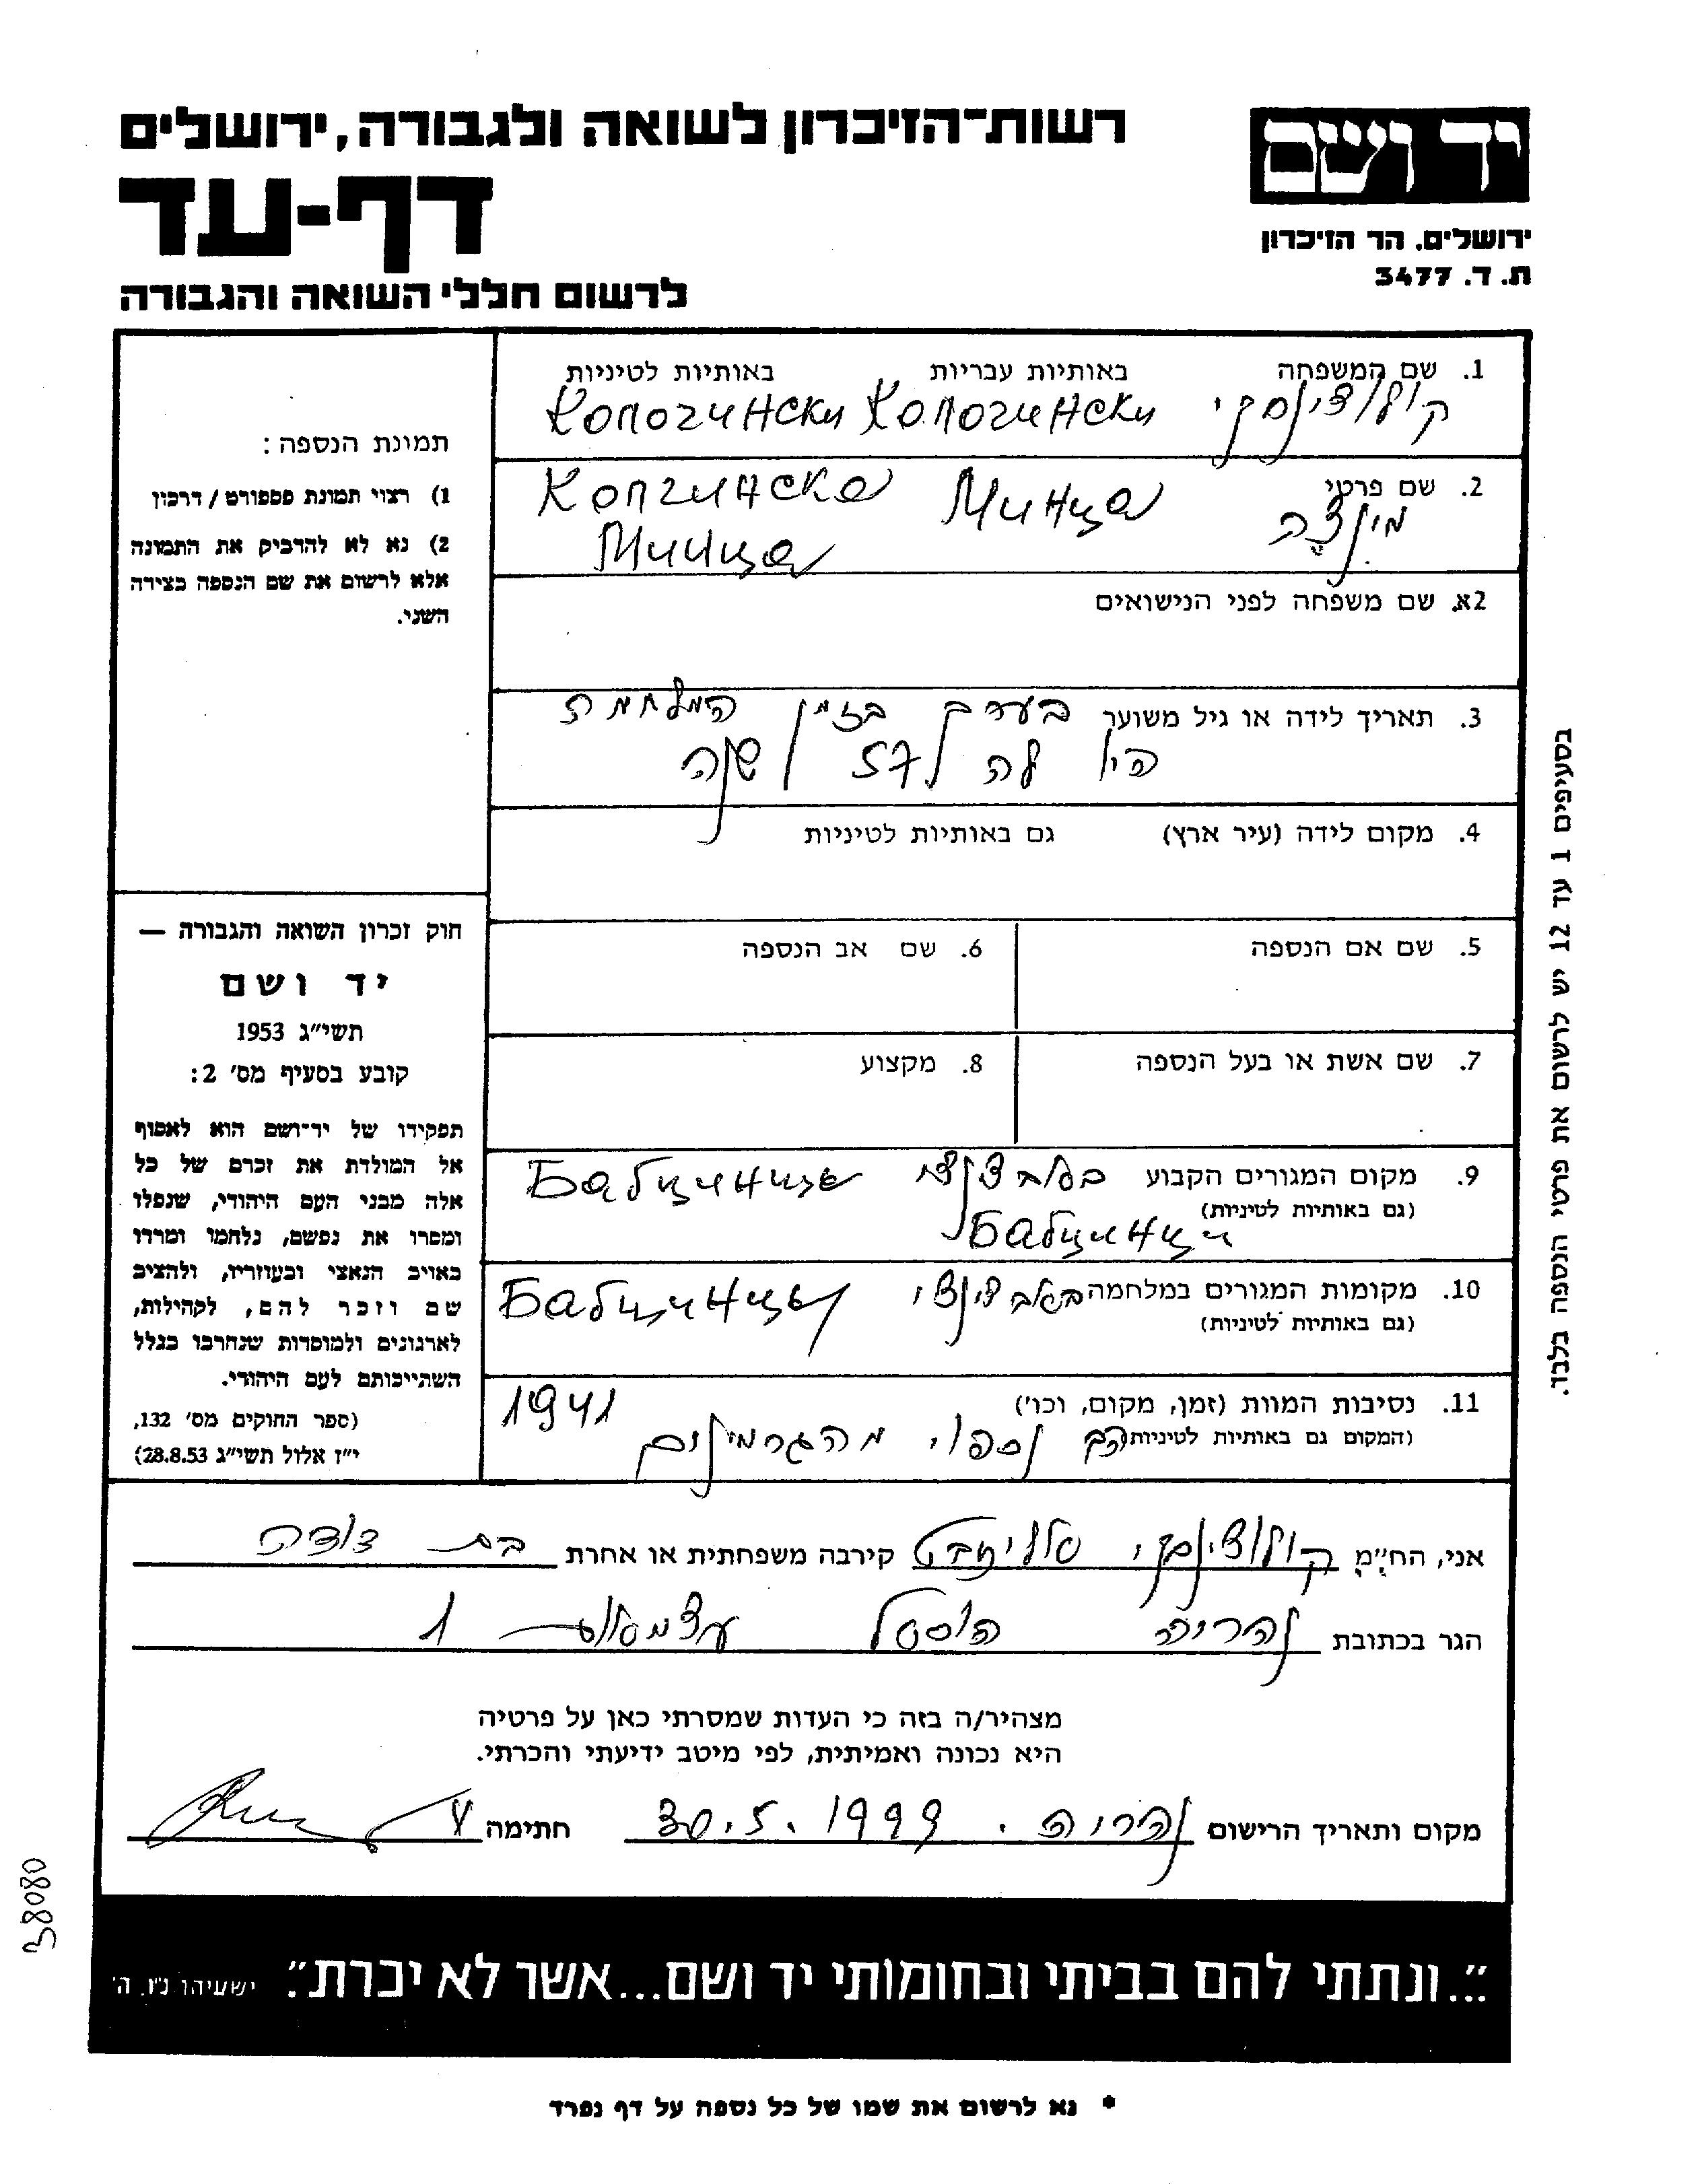 רשות-הזיכרון לשואה ולגבורה, ירושלים
יד ושם
דף-עד
ירושלים. הר הזיכרון
ת. ד. 3477
לרשום חללי השואה והגבורה
1. שם המשפחה באותיות עבריות באותיות לטיניות
2. שם פרטי
Минца
Минца
מינצה
2א. שם משפחה לפני הנישואים
3. תאריך לידה או גיל משוער בערב בזמן המלחמה
היו לה 57 שנה
4. מקום לידה (עיר ארץ) גם באותיות לטיניות
5. שם אם הנספה
6. שם אב הנספה
7. שם אשת או בעל הנספה
8. מקצוע
9. מקום המגורים הקבוע
(גם באותיות לטיניות)
Бабчинци
10. מקומות המגורים במלחמה
(גם באותיות לטיניות)
11. נסיבות המוות (זמן, מקום, וכו') 1941
(המקום גם באותיות לטיניות) נספו מהגרמנים
תמונת הנספה:
1) רצוי תמונת פספורט / דרכון
2) נא לא להדביק את התמונה
אלא לרשום את שם הנספה בצידה
השני.
חוק זכרון השואה והגבורה —
יד ושם
תשי״ג 1953
קובע בסעיף מס׳ 2:
תפקידו של יד־ושם הוא לאסוף
אל המולדת את זכרם של כל
אלה מבני העם היהודי, שנפלו
ומסרו את נפשם, נלחמו ומרדו
באויב הנאצי ובעוזריו, ולהציב
שם וזכר להם, לקהילות,
לארגונים ולמוסדות שנחרבו בגלל
השתייכותם לעם היהודי.
(ספר החוקים מס׳ 132,
י״ז אלול תשי״ג 28.8.53)
בסעיפים 1 עד 12 יש לרשום את פרטי הנספה בלבד.
אני, הח״מ קירבה משפחתית או אחרת בת דודה
הגר בכתובת נהריה הוסטל 1
מצהיר/ה בזה כי העדות שמסרתי כאן על פרטיה
היא נכונה ואמיתית, לפי מיטב ידיעתי והכרתי.
מקום ותאריך הרישום נהריה. 30.5.1999 חתימה
38080
״...ונתתי להם בביתי ובחומותי יד ושם...אשר לא יכרת״. ישעיהו נ״ו, ה׳
* נא לרשום את שמו של כל נספה על דף נפרד